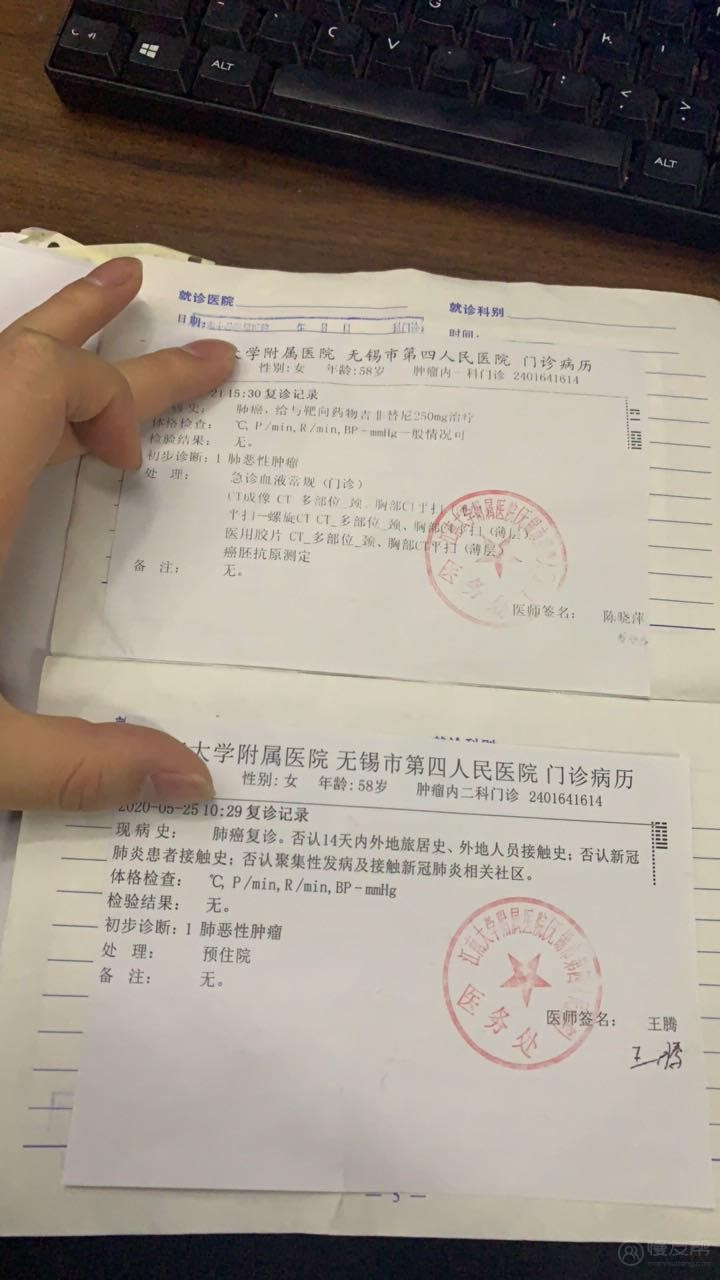 C
V
ALT
ALT
就诊医院
就诊科别
日期:
时间:
大学附属医院 无锡市第四人民医院 门诊病历
性别:女 年龄:58岁 肿瘤内一科门诊 2401641614
15:30 复诊记录
病史: 肺癌，给与靶向药物吉非替尼250mg治疗
体格检查: ℃, P/min, R/min, BP-mmHg一般情况可
检验结果: 无。
初步诊断: 1 肺恶性肿瘤
处 理: 急诊血液常规（门诊）
CT成像 CT_多部位_颈、胸部CT平扫
平扫—螺旋CT CT_多部位_颈、胸部CT平扫（薄层）
医用胶片 CT_多部位_颈、胸部CT平扫（薄层）
癌胚抗原测定
备 注: 无。
医务处
医师签名: 陈晓萍
就诊科别
大学附属医院 无锡市第四人民医院 门诊病历
性别:女 年龄:58岁 肿瘤内二科门诊 2401641614
2020-05-25 10:29 复诊记录
现病史: 肺癌复诊。否认14天内外地旅居史、外地人员接触史；否认新冠
肺炎患者接触史；否认聚集性发病及接触新冠肺炎相关社区。
体格检查: ℃, P/min, R/min, BP-mmHg
检验结果: 无。
初步诊断: 1 肺恶性肿瘤
处 理: 预住院
备 注: 无。
江南大学附属医院(无锡市第四人民医院)
医务处
医师签名: 王腾
王腾
— 5 —
慢友帮